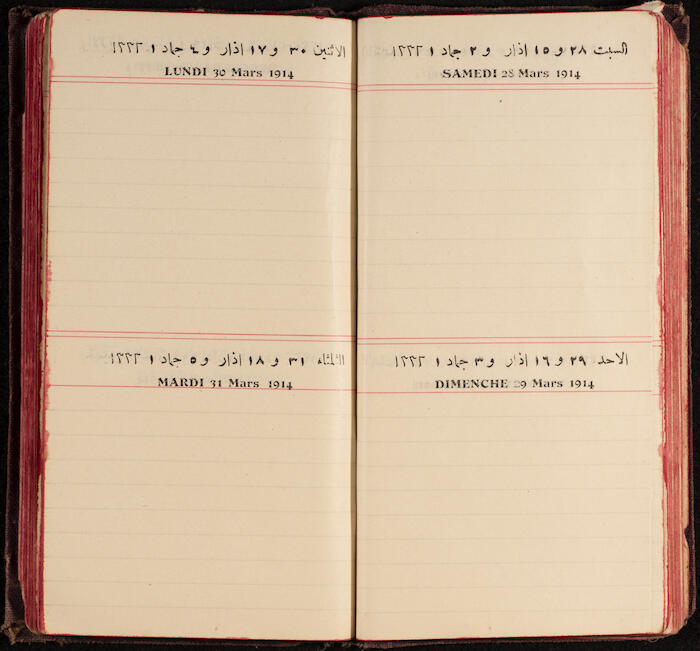 السبت ٢٨ و ١٥ اذار و ٢ جماد ١ ١٣٣٢
SAMEDI 28 Mars 1914
الاحد ٢٩ و ١٦ اذار و ٣ جماد ١ ١٣٣٢
DIMENCHE 29 Mars 1914
الاثنين ٣٠ و ١٧ اذار و ٤ جماد ١ ١٣٣٢
LUNDI 30 Mars 1914
الثلثاء ٣١ و ١٨ اذار و ٥ جماد ١ ١٣٣٢
MARDI 31 Mars 1914